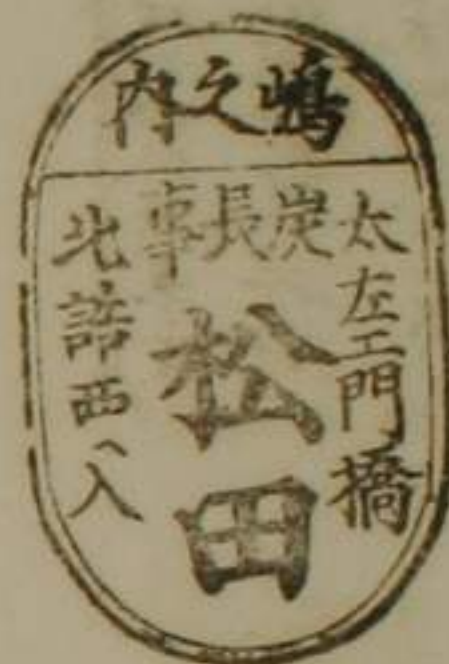 嶋之内
太左エ門橋
炭長事
松田
北詰西へ入